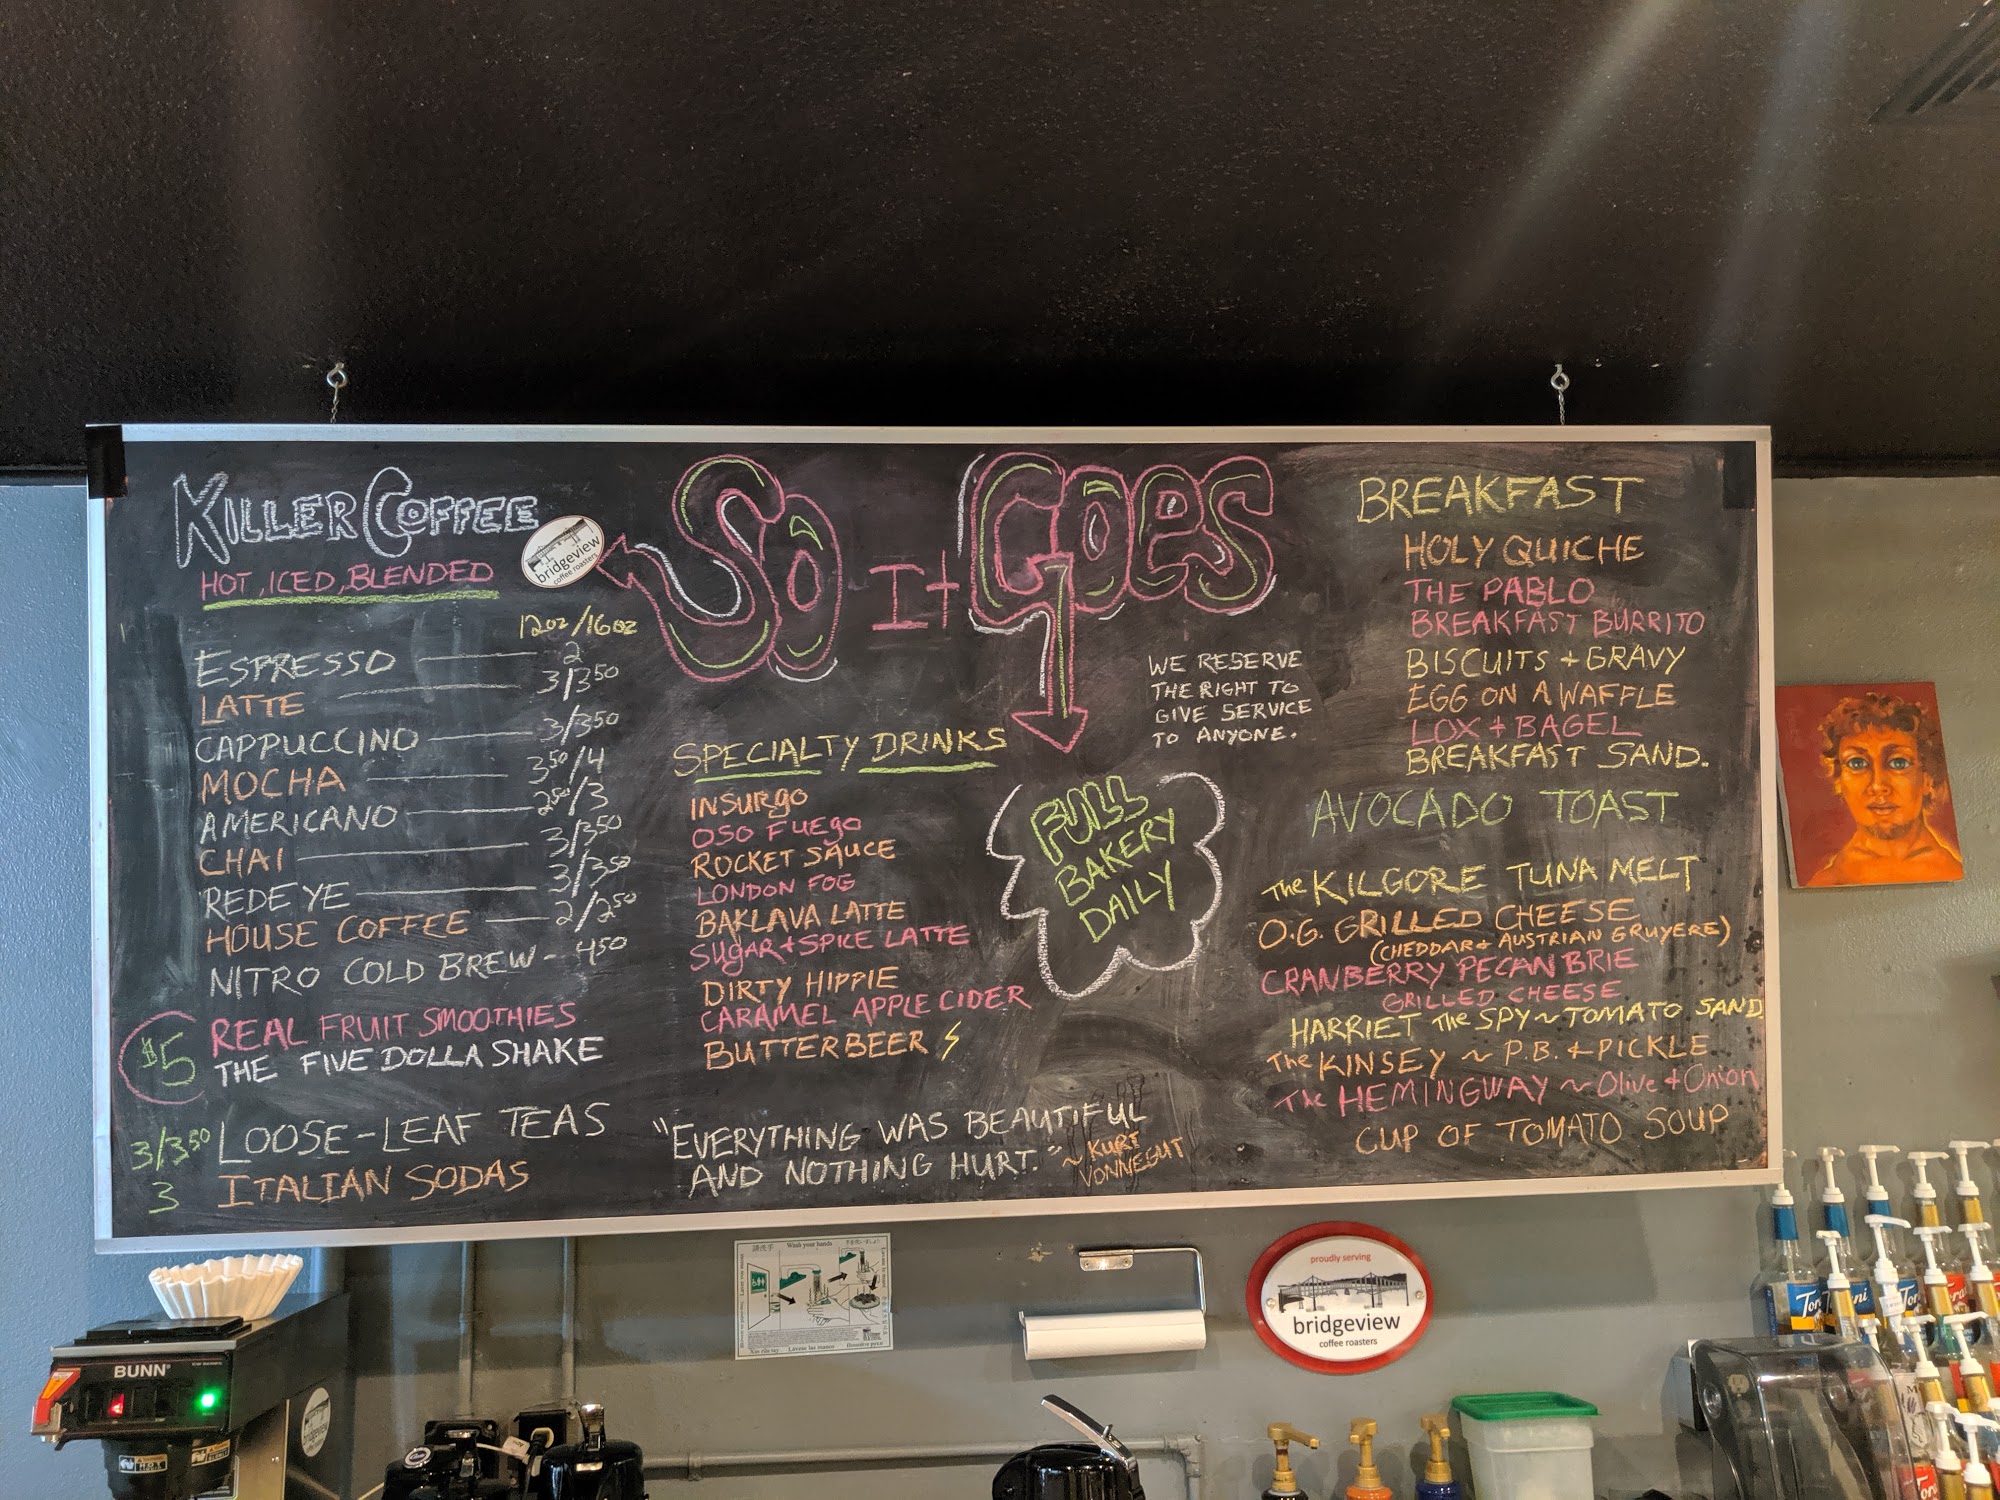 KILLER COFFEE
HOT, ICED, BLENDED
bridgeview
coffee roasters
12oz/16oz
ESPRESSO 2
LATTE 3/3⁵⁰
CAPPUCCINO 3/3⁵⁰
MOCHA 3⁵⁰/4
AMERICANO 2⁵⁰/3
CHAI 3/3⁵⁰
REDEYE 3/3⁵⁰
HOUSE COFFEE 2/2⁵⁰
NITRO COLD BREW - 4⁵⁰
$5
REAL FRUIT SMOOTHIES
THE FIVE DOLLA SHAKE
3/3⁵⁰ LOOSE-LEAF TEAS
3 ITALIAN SODAS
SO It GOES
WE RESERVE
THE RIGHT TO
GIVE SERVICE
TO ANYONE.
SPECIALTY DRINKS
INSURGO
OSO FUEGO
ROCKET SAUCE
LONDON FOG
BAKLAVA LATTE
SUGAR + SPICE LATTE
DIRTY HIPPIE
CARAMEL APPLE CIDER
BUTTERBEER
FULL
BAKERY
DAILY
"EVERYTHING WAS BEAUTIFUL
AND NOTHING HURT."
~ KURT
VONNEGUT
BREAKFAST
HOLY QUICHE
THE PABLO
BREAKFAST BURRITO
BISCUITS + GRAVY
EGG ON A WAFFLE
LOX + BAGEL
BREAKFAST SAND.
AVOCADO TOAST
The KILGORE TUNA MELT
O.G. GRILLED CHEESE
(CHEDDAR + AUSTRIAN GRUYERE)
CRANBERRY PECAN BRIE
GRILLED CHEESE
HARRIET The SPY ~ TOMATO SAND
The KINSEY ~ P.B. + PICKLE
The HEMINGWAY ~ Olive + Onion
CUP OF TOMATO SOUP
BUNN
Wash your hands
Lávese las manos
proudly serving
bridgeview
coffee roasters
Torani